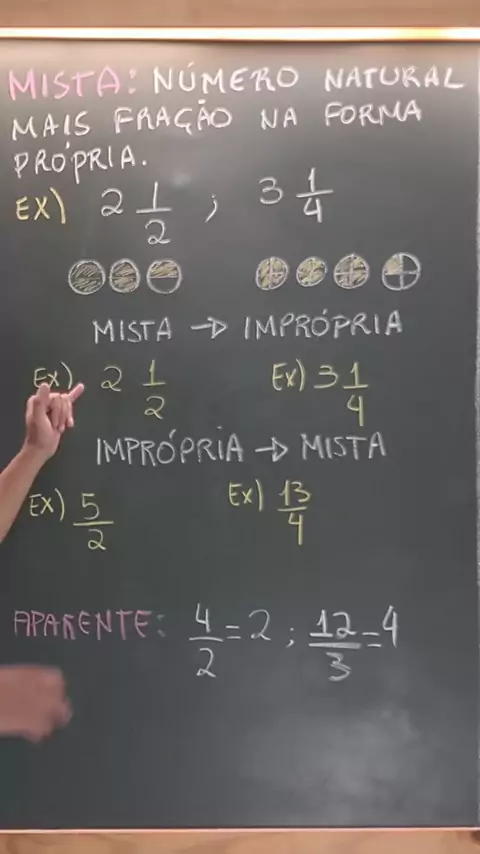 MISTA: NÚMERO NATURAL
MAIS FRAÇÃO NA FORMA
PRÓPRIA.
EX) 2 1/2 ; 3 1/4
MISTA → IMPRÓPRIA
EX) 2 1/2 EX) 3 1/4
IMPRÓPRIA → MISTA
EX) 5/2 EX) 13/4
APARENTE: 4/2 = 2 ; 12/3 = 4